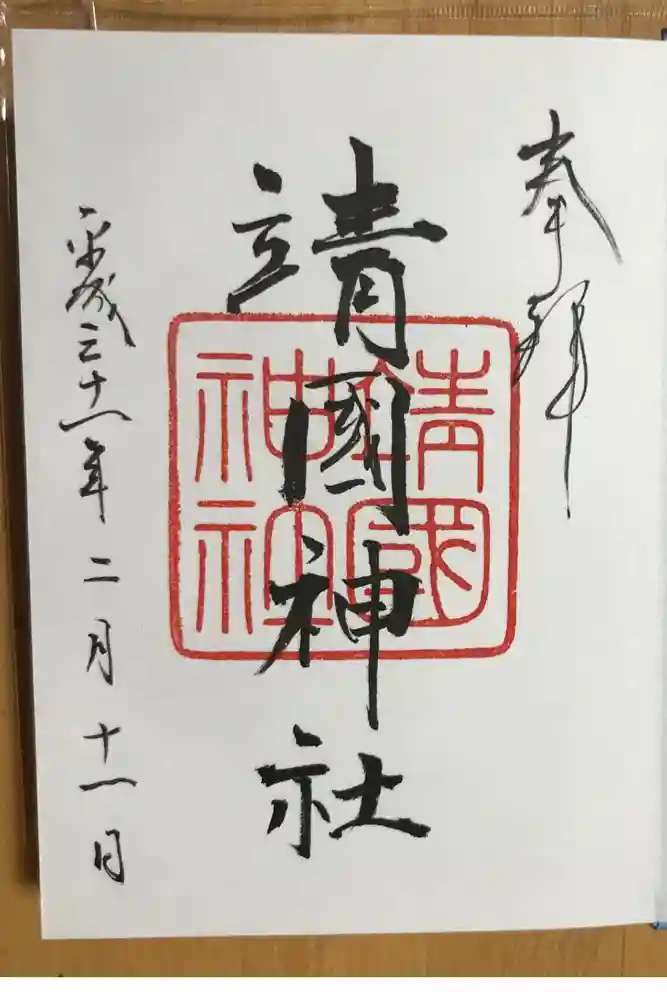 奉拝
靖國神社
靖國
神社
平成三十一年二月十一日